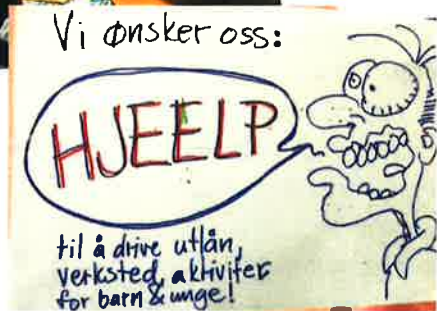 Vi ønsker oss:
HJEELP
til å drive utlån,
verksted, aktiviteter
for barn & unge!